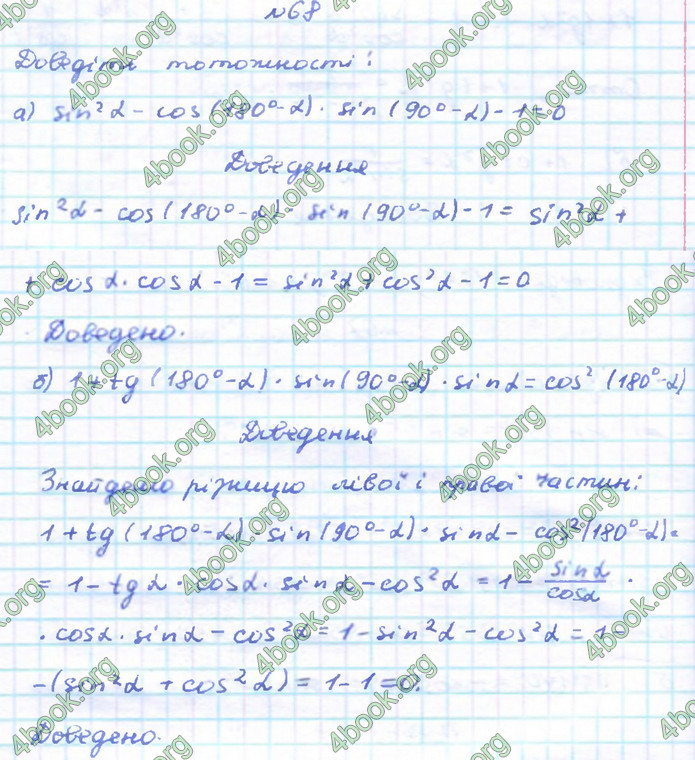 №68
Доведіть тотожності:
а) sin²α - cos(180°-α)·sin(90°-α)-1=0
Доведення
sin²α - cos(180°-α)· sin(90°-α)-1= sin²α +
+ cosα·cosα-1= sin²α+cos²α-1=0
Доведено.
б) 1+tg(180°-α)·sin(90°-α)·sinα=cos²(180°-α)
Доведення
Знайдемо різницю лівої і правої частин:
1+tg(180°-α)·sin(90°-α)·sinα- cos²(180°-α)=
= 1-tgα·cosα·sinα-cos²α = 1- sinα/cosα ·
·cosα·sinα-cos²α=1-sin²α-cos²α=1-
-(sin²α+cos²α)=1-1=0.
Доведено.
4book.org